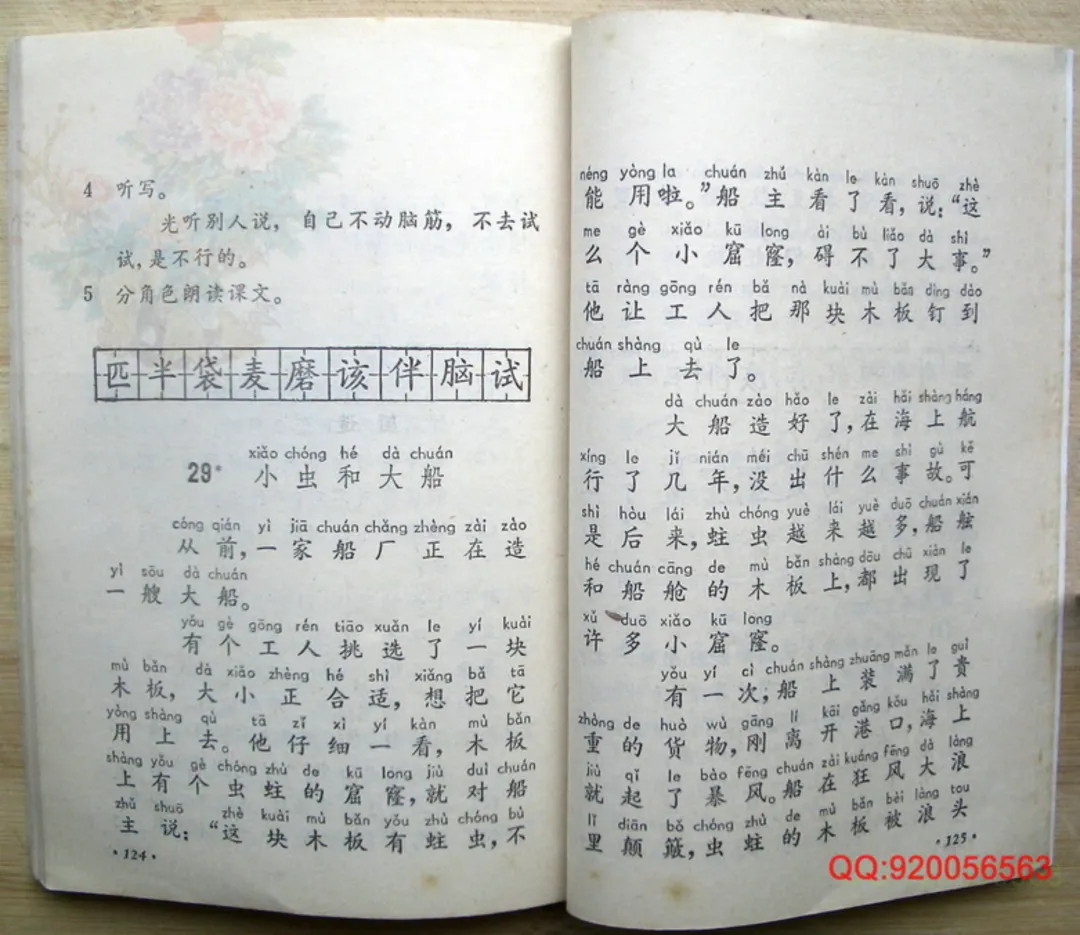 4 听写。
光听别人说，自己不动脑筋，不去试
试，是不行的。
5 分角色朗读课文。
匹半袋麦磨该伴脑试
xiǎo chóng hé dà chuán
29* 小虫和大船
cóng qián yì jiā chuán chǎng zhèng zài zào
从前，一家船厂正在造
yì sōu dà chuán
一艘大船。
yǒu gè gōng rén tiāo xuǎn le yí kuài
有个工人挑选了一块
mù bǎn dà xiǎo zhèng hé shì xiǎng bǎ tā
木板，大小正合适，想把它
yòng shàng qù tā zǐ xì yí kàn mù bǎn
用上去。他仔细一看，木板
shàng yǒu gè chóng zhù de kū long jiù duì chuán
上有个虫蛀的窟窿，就对船
zhǔ shuō zhè kuài mù bǎn yǒu zhù chóng bù
主说：“这块木板有蛀虫，不
·124·
néng yòng la chuán zhǔ kàn le kàn shuō zhè
能用啦。”船主看了看，说：“这
me gè xiǎo kū long ài bù liǎo dà shì
么个小窟窿，碍不了大事。”
tā ràng gōng rén bǎ nà kuài mù bǎn dìng dào
他让工人把那块木板钉到
chuán shàng qù le
船上去了。
dà chuán zào hǎo le zài hǎi shàng háng
大船造好了，在海上航
xíng le jǐ nián méi chū shén me shì gù kě
行了几年，没出什么事故。可
shì hòu lái zhù chóng yuè lái yuè duō chuán xián
是后来，蛀虫越来越多，船舷
hé chuán cāng de mù bǎn shàng dōu chū xiàn le
和船舱的木板上，都出现了
xǔ duō xiǎo kū long
许多小窟窿。
yǒu yí cì chuán shàng zhuāng mǎn le guì
有一次，船上装满了贵
zhòng de huò wù gāng lí kāi gǎng kǒu hǎi shàng
重的货物，刚离开港口，海上
jiù qǐ le bào fēng chuán zài kuáng fēng dà làng
就起了暴风。船在狂风大浪
lǐ diān bǒ chóng zhù de mù bǎn bèi làng tou
里颠簸，虫蛀的木板被浪头
·125·
QQ:920056563